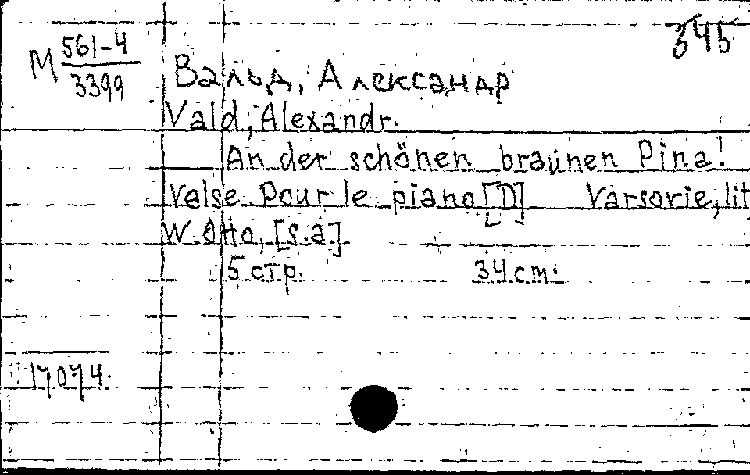 345
М 561-4
3399
Вальд, Александр
Vald, Alexandr.
An der schönen braunen Pina!
Valse pour le piano [D] Varsovie, lit
W. Otto, [s.a.]
5 стр. 34 cm.
17074.